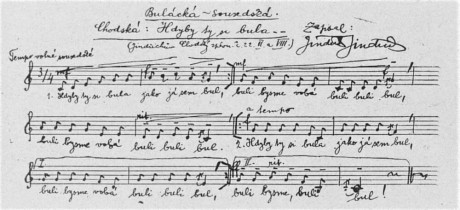 Bulácká - sousedská.
Chodská: Hdyby ty si bula -- Zapsal:
(Jindřichův Chodský zpěvn. Jindř. Jindřich
Tempo volné sousedské
3/4 mf mf
1. Hdyby ty si bula jako já sem bul, buli bysme vobá buli buli bul,
rit. a tempo
buli bysme vobá buli buli bul. 2. Hdyby ty si bula jako já sem bul,
I. II. rit.
buli bysme vobá buli buli bul, buli bysme vobá, buli bul!